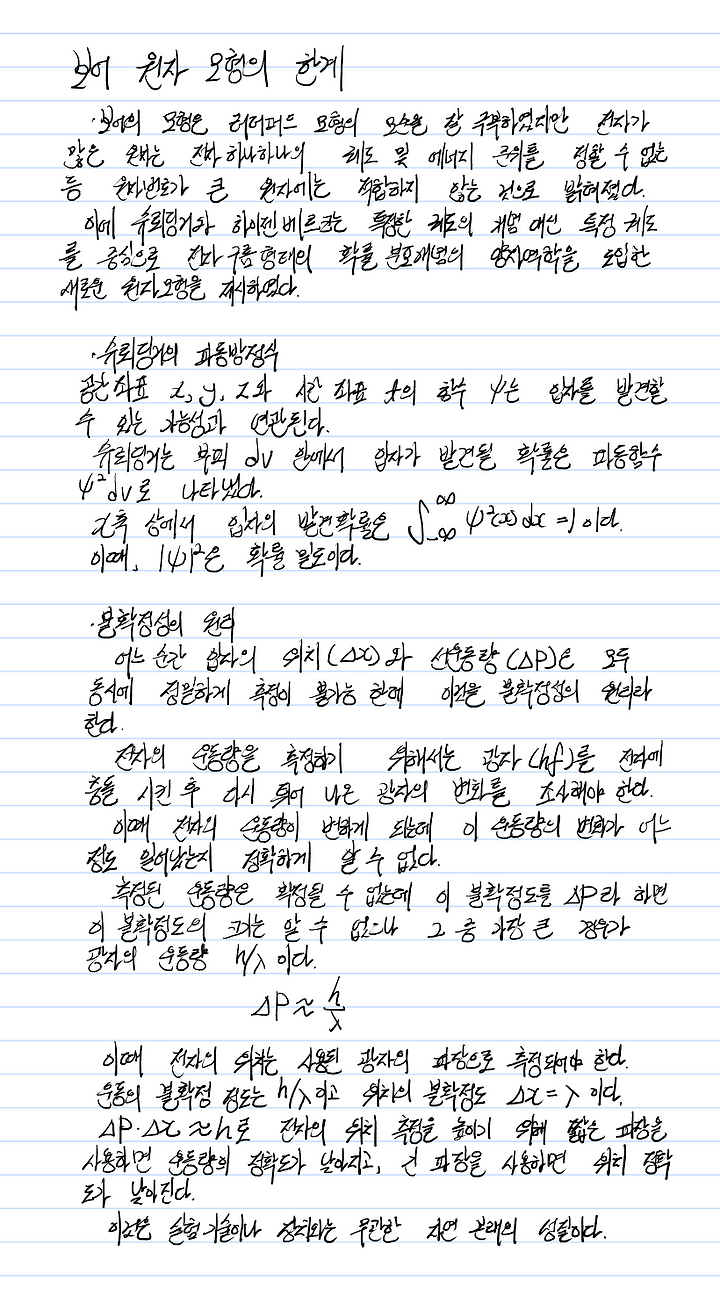 보어 원자 모형의 한계
·보어의 모형은 러더퍼드 모형의 모순을 잘 극복하였지만 전자가
많은 원자는 전자 하나하나의 궤도 및 에너지 준위를 정할 수 없는
등 원자번호가 큰 원자에는 적합하지 않는 것으로 밝혀졌다.
이에 슈뢰딩거와 하이젠베르크는 특정한 궤도의 개념 대신 특정 궤도
를 중심으로 전자구름 형태의 확률 분포개념의 양자역학을 도입한
새로운 원자모형을 제시하였다.
·슈뢰딩거의 파동방정식
공간좌표 x, y, z와 시간 좌표 t의 함수 ψ는 입자를 발견할
수 있는 가능성과 연관된다.
슈뢰딩거는 부피 dv 안에서 입자가 발견될 확률은 파동함수
ψ²dv로 나타냈다.
x축 상에서 입자의 발견확률은 ∫_{-∞}^{∞} ψ²(x)dx = 1 이다.
이때, |ψ|²은 확률 밀도이다.
·불확정성의 원리
어느 순간 입자의 위치(Δx)와 선운동량(ΔP)은 모두
동시에 정밀하게 측정이 불가능 한데 이것을 불확정성의 원리라
한다.
전자의 운동량을 측정하기 위해서는 광자(hf)를 전자에
충돌 시킨 후 다시 튀어 나온 광자의 변화를 조사해야 한다.
이때 전자의 운동량이 변하게 되는데 이 운동량의 변화가 어느
정도 일어났는지 정확하게 알 수 없다.
측정된 운동량은 확정될 수 없는데 이 불확정도를 ΔP라 하면
이 불확정도의 크기는 알 수 없으나 그 중 가장 큰 경우가
광자의 운동량 h/λ 이다.
ΔP ≈ h/λ
이때 전자의 위치는 사용된 광자의 파장으로 측정되어야 한다.
운동의 불확정 정도는 h/λ이고 위치의 불확정도 Δx = λ 이다.
ΔP·Δx ≈ h로 전자의 위치 측정을 높이기 위해 짧은 파장을
사용하면 운동량의 정확도가 낮아지고, 긴 파장을 사용하면 위치 정확
도가 낮아진다.
이것은 실험 기술이나 장치와는 무관한 자연 본래의 성질이다.